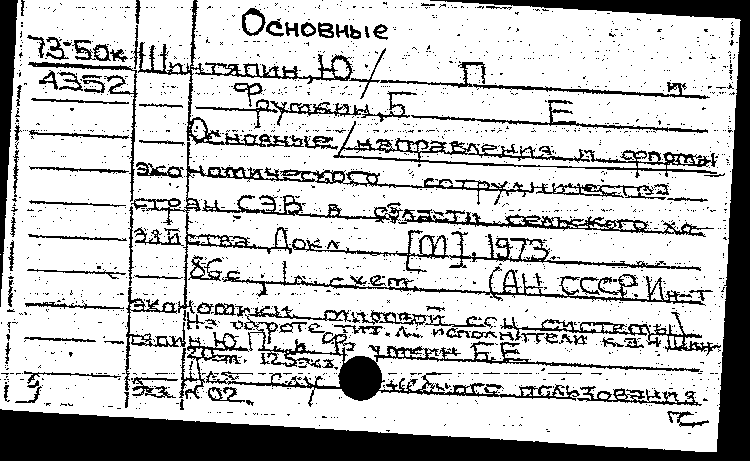 Основные
73-50к Шинтяпин, Ю / П и
4352 Фруткин, Б Е
Основные / направления и формы
экономического сотрудничества
стран СЭВ в области сельского хо-
зяйства. Докл. [М], 1973.
86с., 1л. схем. (АН СССР. Ин-т
экономики мировой соц системы)
На обороте тит. л. исполнители к.э.н Шин-
тяпин Ю.П. и Фруткин Б.Е
20см. 125экз.
Для служебного пользования.
Экз. №02.